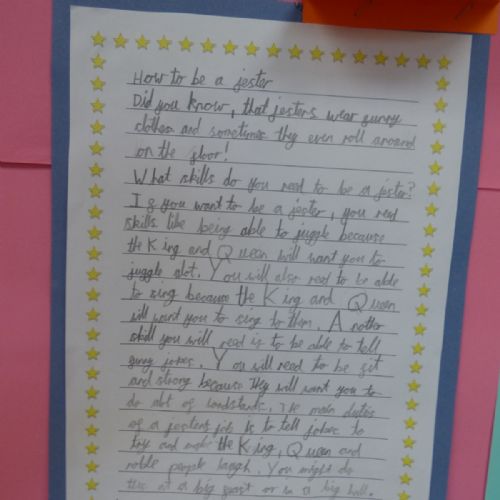 How to be a jester
Did you know, that jesters wear funny
clothes and sometimes they even roll around
on the floor!
What skills do you need to be a jester?
If you want to be a jester, you need
skills like being able to juggle because
the King and Queen will want you to
juggle alot. You will also need to be able
to sing because the King and Queen
will want you to sing to them. Another
skill you will need is to be able to tell
funny jokes. You will need to be fit
and strong because they will want you to
do alot of handstands. The main duties
of a jesters job is to tell jokes to
try and make the King, Queen and
noble people laugh. You might do
this at a big feast or in a big hall